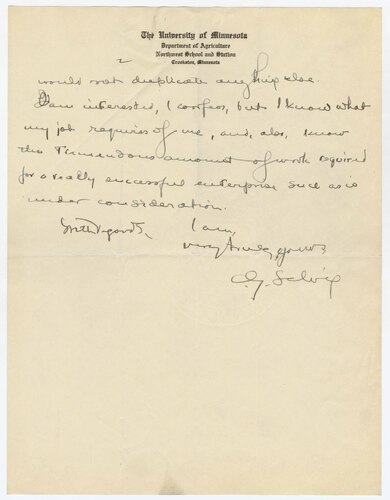 The University of Minnesota
Department of Agriculture
Northwest School and Station
Crookston, Minnesota
2
would not duplicate anything else.
I am interested, I confess, but I know what
my job requires of me, and, also, I know
the tremendous amount of work required
for a really successful enterprise such as is
under consideration.
With regards, I am,
very truly yours,
C. G. Selvig